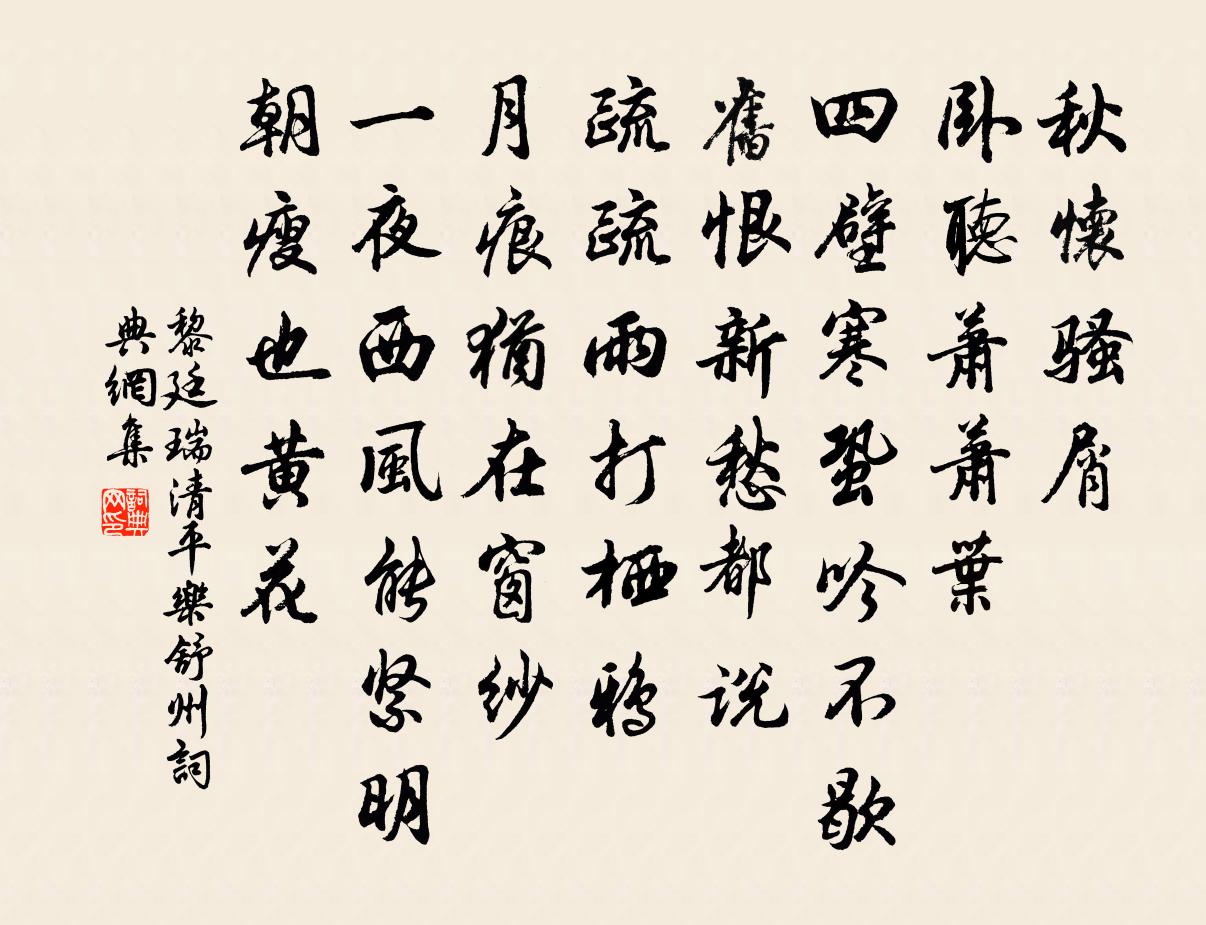 秋懷騷屑
卧聽蕭蕭葉
四壁寒蛩吟不歇
舊恨新愁都說
疏疏雨打栖鴉
月痕猶在窗紗
一夜西風能緊明
朝瘦也黃花
黎廷瑞清平樂舒州詞
典網集
詞典
网印